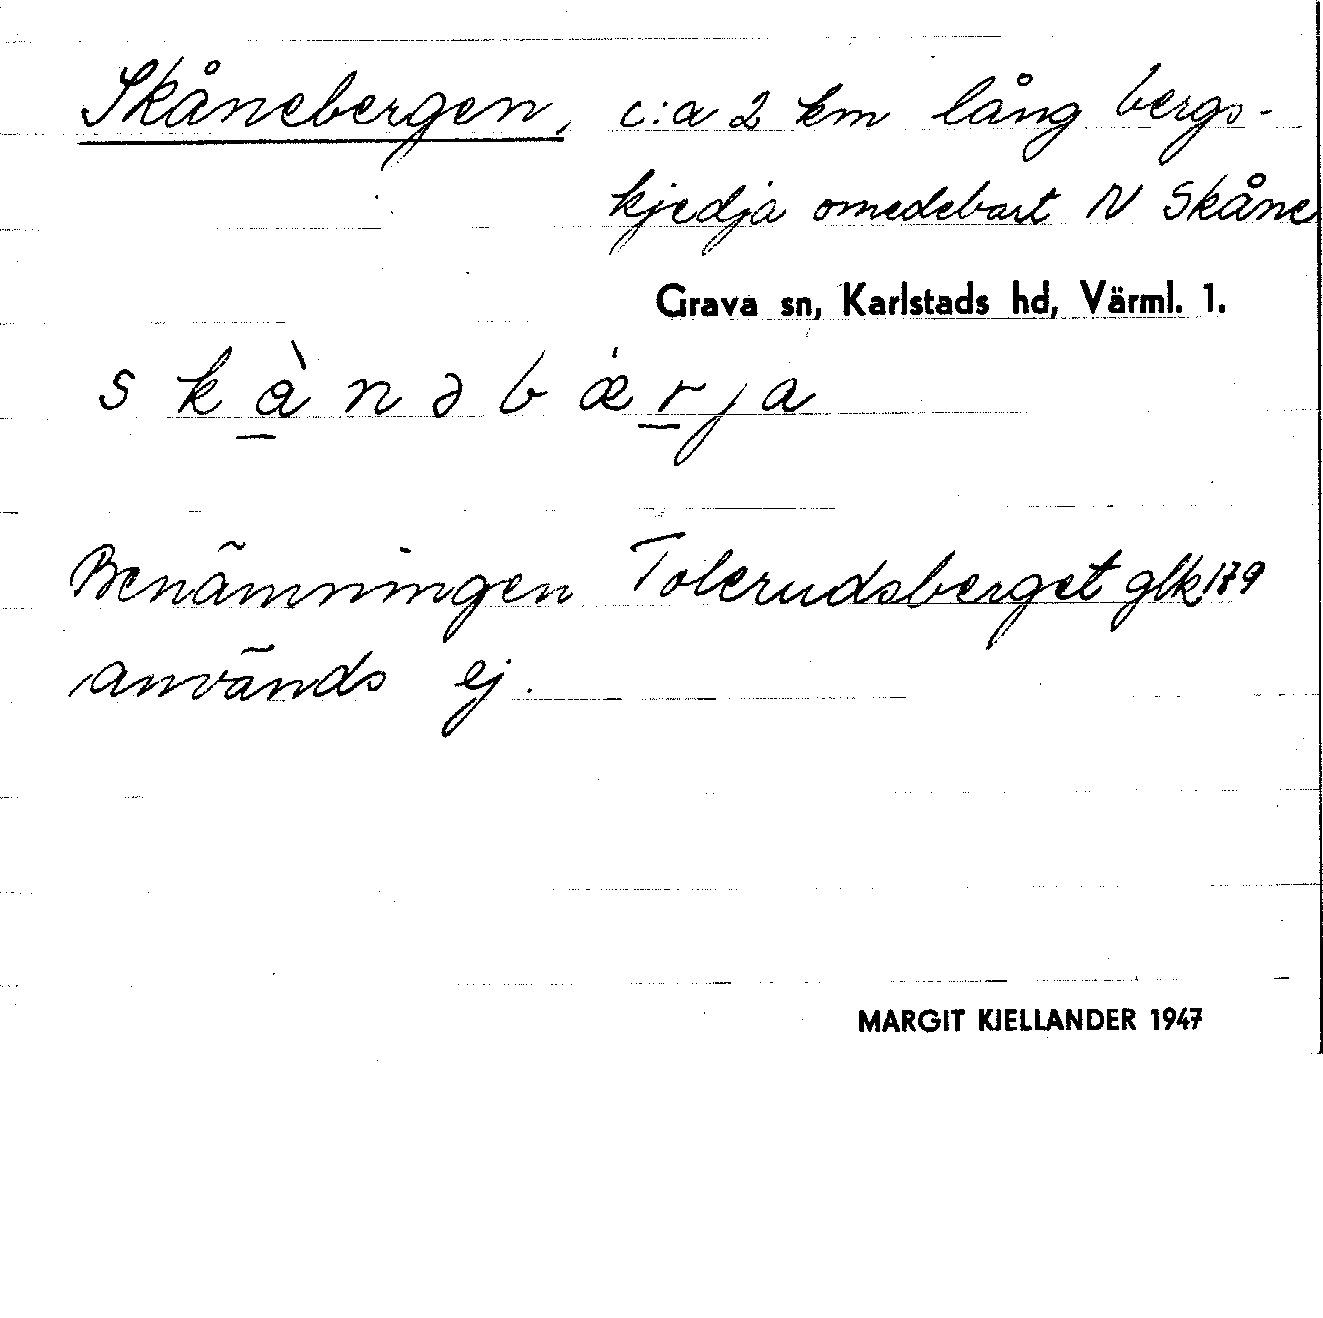 Skånebergen, c:a 2 km lång bergs-
kjedja omedebart N Skåne
Grava sn, Karlstads hd, Värml. 1.
skànəbærja
Benämningen Tolerudsberget glk 179
används ej.
MARGIT KJELLANDER 1947